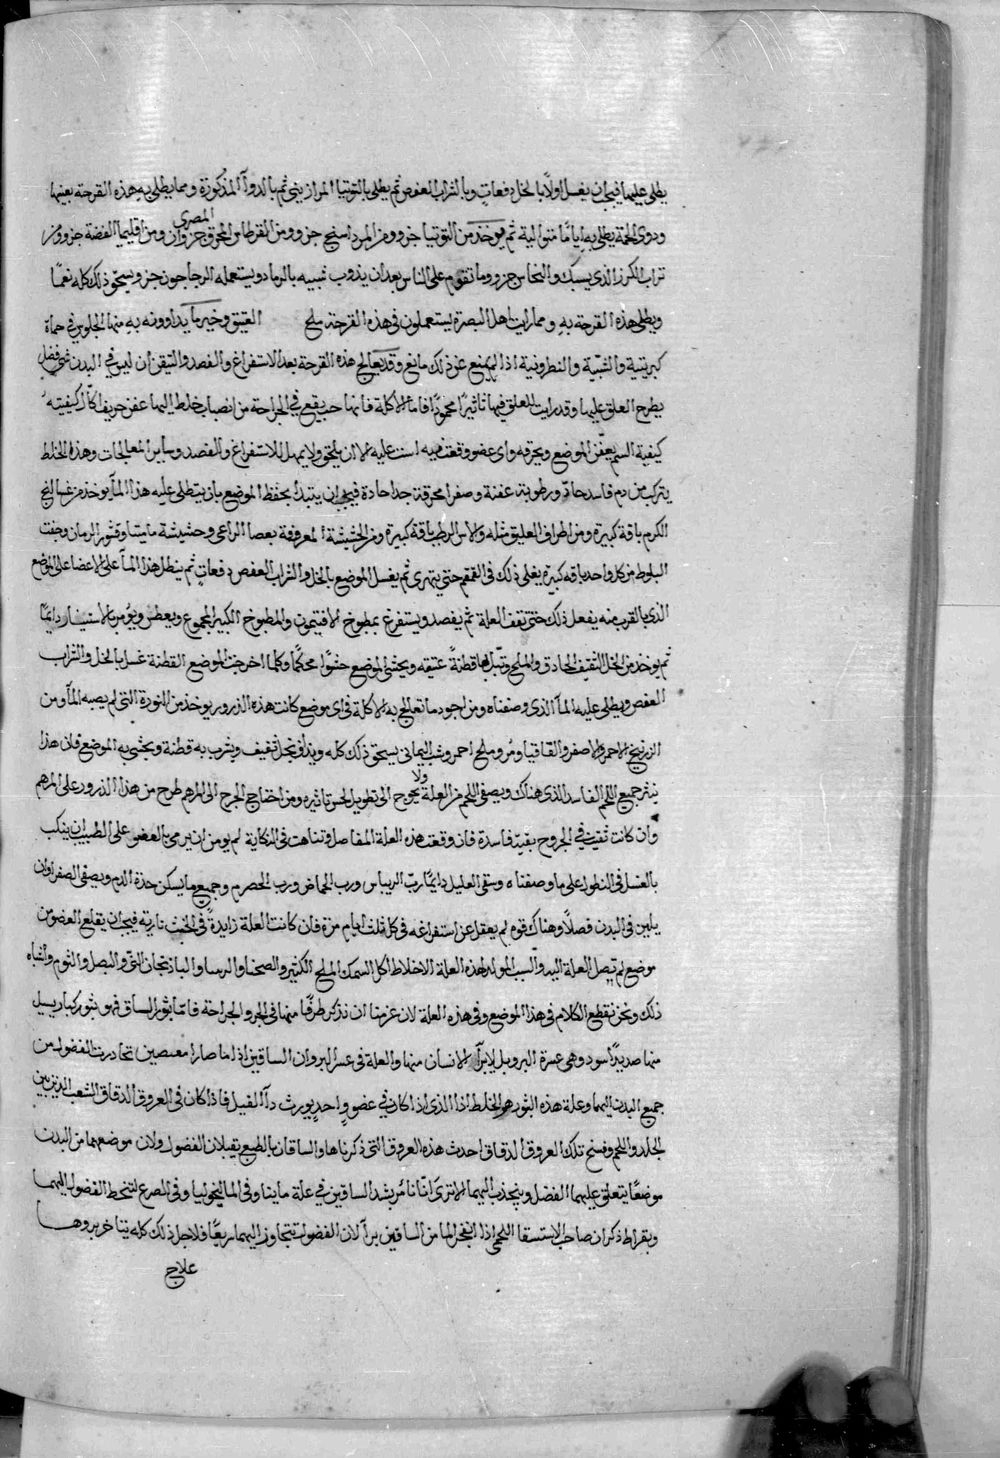 يطلى عليها فيجب ان يغسل اولًا بالخل دفعاتٍ وبالشراب العفص ثم يطلى بالتوتيا المرازبنى ثم بالدوآ المذكورة ومما يطلى به هذه القرحة بعينها
ودوى الحمة يطلى به ايامًا متوالية ثم يوخذ من التوتيا جزو ومن المرداسنج جزو ومن القرطاس المصرى المحرق جزوان ومن اقليميا الفضة جزو ومن
تراب الكرز الذى يسبك والنحاس جزو وما تقوم على الناس بعد ان يذوب شبيه بالرماد ويستعمله الزجاجون جزو يسحق ذلك كله نعمًا
ويطلى هذه القرحة به ومما رايت اهل البصرة يستعملون فى هذه القرحة ملح العتيق وخير ما يداوونه به منها الجلوس فى حماة
كبريتية والشبّية والنطرونية اذا لم يمنع عن ذلك مانع وقد يعالج هذه القرحة بعد الاستفراغ والفصد والتيقن ان ليس فى البدن شى فضل
يطرح العلق عليها وقد رايت للعلق فيها تاثيرًا محمودًا فاما الاكلة فانها حب يقع فى الجراحة من انصباب خلط اليها عفن حريف اكّال كيفيته
كيفية السم يعفن الموضع ويحرقه واى عضو وقعت فيه اسئت عليه الا ان يلحق ولا يمهل للاستفراغ والفصد وسائر المعالجات وهذا الخلط
يتركب من دم فاسد حاد ورطوبة عفنة وصفرا محرقة جدا حادة فيجب ان يبتدأ بحفظ الموضع بان يتطلى عليه هذا المآ يوخذ من عساليج
الكرم باقة كبيرة ومن اطراف العليق مثله والاس الرطب باقة كبيرة ومن الحشيشة المعروفة بعصا الراعى وحشيشة ماميثا وقشور الرمان وجفت
البلوط من كل واحد باقه كبيرة يغلى ذلك فى القمقم حتى يتهرى ثم يغسل الموضع بالخل والشراب العفص دفعاتٍ ثم ينطل هذا المآ على الاعضا على الموضع
الذى بالقرب منه يفعل ذلك حتى تقف العلة ثم يفصد ويستفرغ بمطبوخ الافتيمون والمطبوخ الكبير المجموع ويعطش ويومر بالاستنيار دايمًا
ثم يوخذ من الخل الثقيف الحاذق والملح وتبل بها قطنةً عتيقه ويحشى الموضع حشوًا محكمًا وكلما اخرجت الموضع القطنة غسل بالخل والشراب
العفص ويطلى عليه المآ الذى وصفناه ومن اجود ما تعالج به الاكلة فى اى موضع كانت هذه الذرور يوخذ من النورة التى لم يصبه المآ ومن
الزرنيخ الاحمر والاصفر والقاقيا ومُر وملح احمر وشب اليمانى يسحق ذلك كله ويداف بخل ثقيف ويشرب به قطنة ويحشى به الموضع فان هذا
ينثر جميع اللحم الفاسد الذى هناك ويصفى اللحم من العلة ولا يحوج الى تطويل لحسن تاثيره ومن احتاج الجرح الى المرهم طرح من هذا الذرور على المرهم
وان كانت بقيت فى الجروح بقية فاسدة فان وقعت هذه العلة المفاصل وتناهت فى النكاية لم يومن ان يرمى بالعضو على الطبيب ان ينكب
بالغسل فى النطول على ما وصفناه وسقى العليل دايمًا ربّ الريباس ورب الحماض ورب الحصرم وجميع ما يسكن حدة الدم ويصفى الصفرا وان
يلين فى البدن فصلًا وهناك قوه لم يعقل عن استفراغه فى كل ثلث ايام مرة فان كانت العلة زايدةً فى الخبث نارية فيجب ان يقلع العضو من
موضع لم تصل العلة اليه والسبب المولد لهذه العلة الاخلاط اكل السمك المالح الكثير والصحنا والربيسا والباذنجان النى والبصل والثوم واشباه
ذلك ونحن نقطع الكلام فى هذا الموضع وفى هذه العلة لان عزمنا ان نذكر طرفًا منها فى الجبر والجراحة فامّا بثور الساق فهو بثور كبار يسيل
منها صديدًا اسود وهى عسرة البرو بل لا يبرآ الانسان منها والعلة فى عسر البرو ان الساقين اذا ما صارا معصين تحادرت الفضول من
جميع البدن اليهما وعلة هذه البثور هو الخلط اذا الذى اذا كان فى عضوٍ واحدٍ يورث دآ الفيل فاذا كان فى العروق الدقاق الشعب الذى بين
الجلد واللحم وفسخ تلك العروق الدقاق احدث هذه العروق التى ذكرناها والساقان بالطبع يقبلان الفضول ولان موضعهما من البدن
موضعًا يتعلق عليهما الفضل وينجذب اليهما الا ترى انّا نامُر بشد الساقين فى علة مانيا وفى الماليخوليا وفى الصرع لتنحط الفضول اليهما
وبقراط ذكر ان صاحب الاستسقا اللحمى اذا انفجر الما من الساقين برآ لان الفضول تتجاوز اليهما سريعًا فلاجل ذلك كله يتاخر بروهـا
علاج